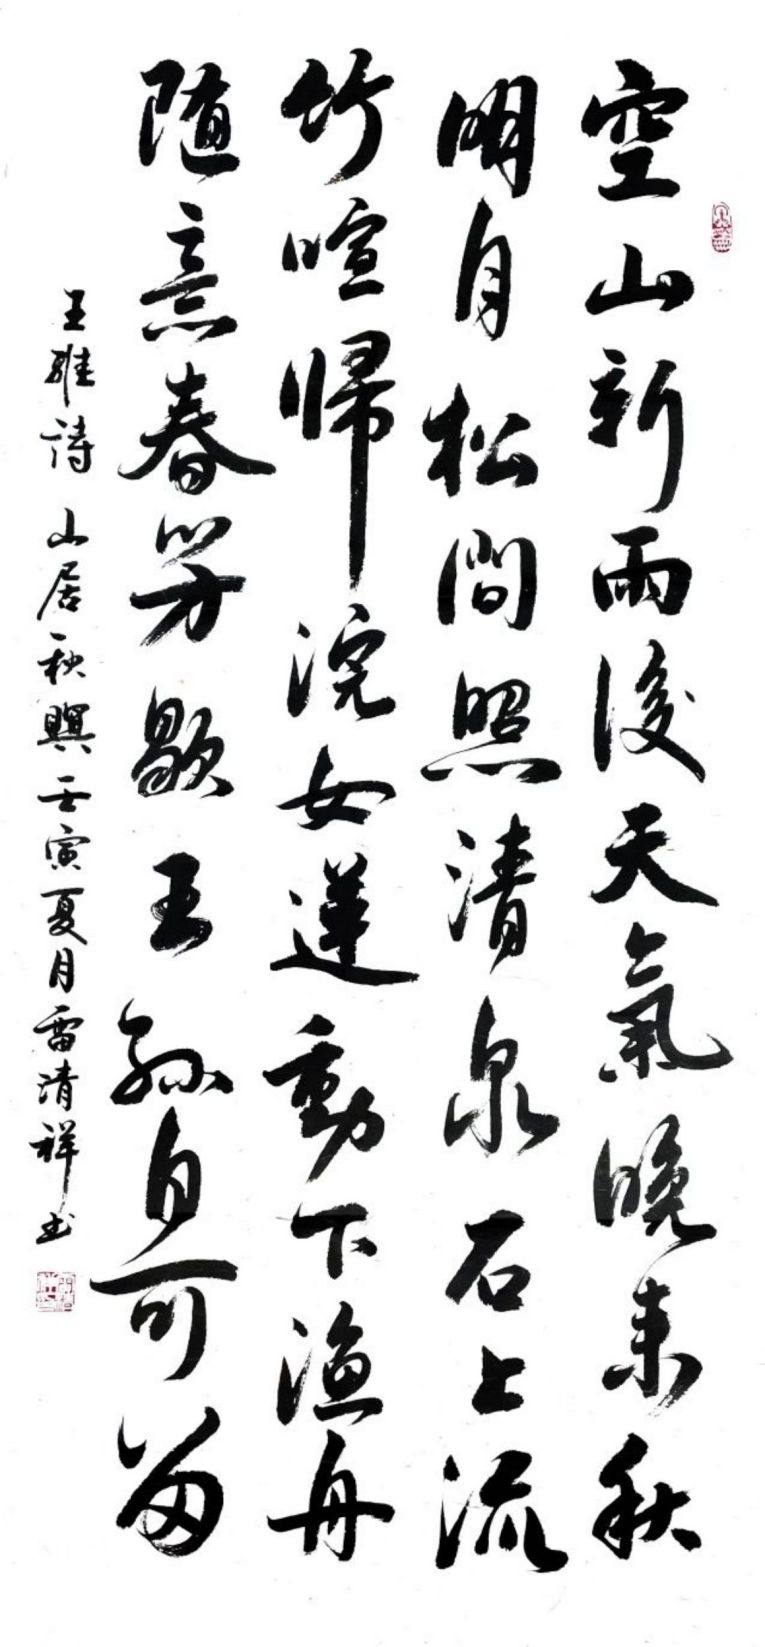 空山新雨後天氣晚来秋
明月松間照清泉石上流
竹喧歸浣女蓮動下漁舟
随意春芳歇王孫自可留
王維詩山居秋暝壬寅夏月雷清祥书